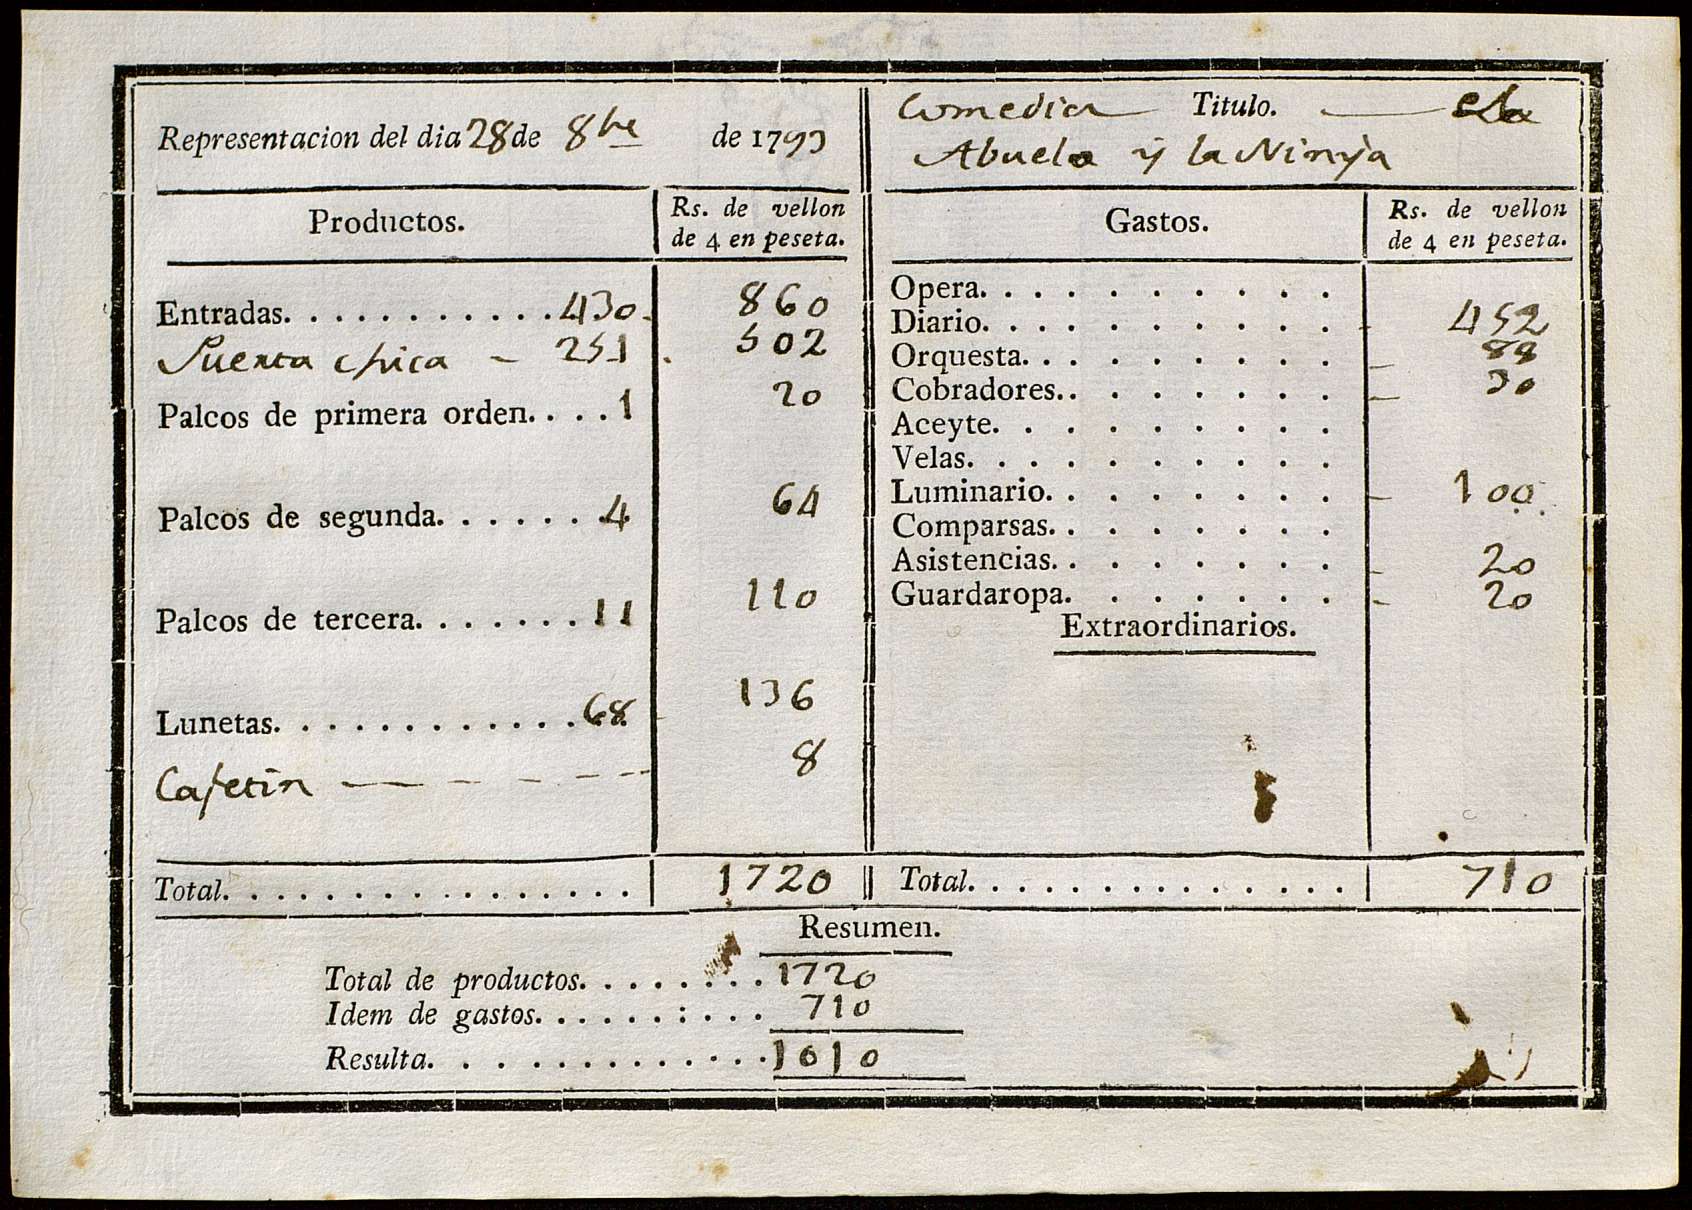 Comedia Titulo.
Representacion del dia 28 de 8bre de 1793
Abuelo y la Ninya
Productos. Rs. de vellon de 4 en peseta.
Gastos. Rs. de vellon de 4 en peseta.
Entradas. . . . . . . . . . . 430. 860
Puerta chica - 251. 502
Palcos de primera orden. . . . 1 20
Palcos de segunda. . . . . . . 4 64
Palcos de tercera. . . . . . . 11 110
Lunetas. . . . . . . . . . . . 68 136
Cafetin — - - - - 8
Total. . . . . . . . . . . . . . . . 1720
Opera. . . . . . . . . . .
Diario. . . . . . . . . . . 452
Orquesta. . . . . . . . . 88
Cobradores. . . . . . . . 30
Aceyte. . . . . . . . . .
Velas. . . . . . . . . . .
Luminario. . . . . . . . 100
Comparsas. . . . . . . .
Asistencias. . . . . . . . 20
Guardaropa. . . . . . . 20
Extraordinarios.
Total. . . . . . . . . . . . . . 710
Resumen.
Total de productos. . . . . . . . 1720
Idem de gastos. . . . . . : . . . 710
Resulta. . . . . . . . . . . . . . 1010